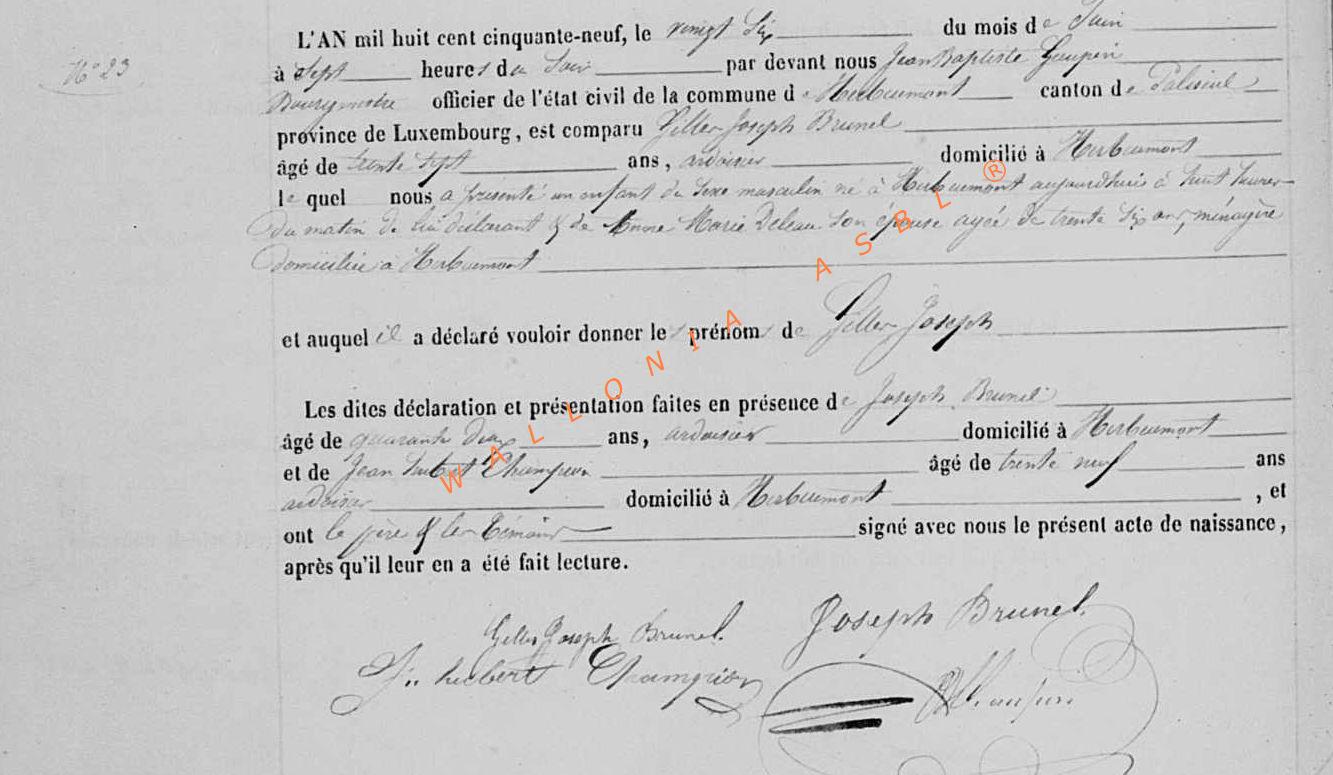 N° 23
L'AN mil huit cent cinquante-neuf, le vingt Six du mois de Juin
à Sept heures du Soir par devant nous Jean Baptiste
Bourgmestre officier de l'état civil de la commune de Herbeumont canton de Paliseul
province de Luxembourg, est comparu Gilles Joseph Brunel
âgé de trente Sept ans, ardoisier domicilié à Herbeumont
le quel nous a présenté un enfant du Sexe masculin né à Herbeumont aujourdhuis à huit heures
du matin de lui déclarant & de Anne Marie Deleau Son épouse agée de trente Six ans, ménagère
domiciliée à Herbeumont
et auquel il a déclaré vouloir donner les prénoms de Gilles Joseph
Les dites déclaration et présentation faites en présence de Joseph Brunel
âgé de quarante deux ans, ardoisier domicilié à Herbeumont
et de Jean hubert Champion âgé de trente neuf ans
ardoisier domicilié à Herbeumont , et
ont le père & les témoins signé avec nous le présent acte de naissance,
après qu'il leur en a été fait lecture.
Gilles Joseph Brunel. Joseph Brunel.
J.. hubert Champion
WALLONIA ASBL ®